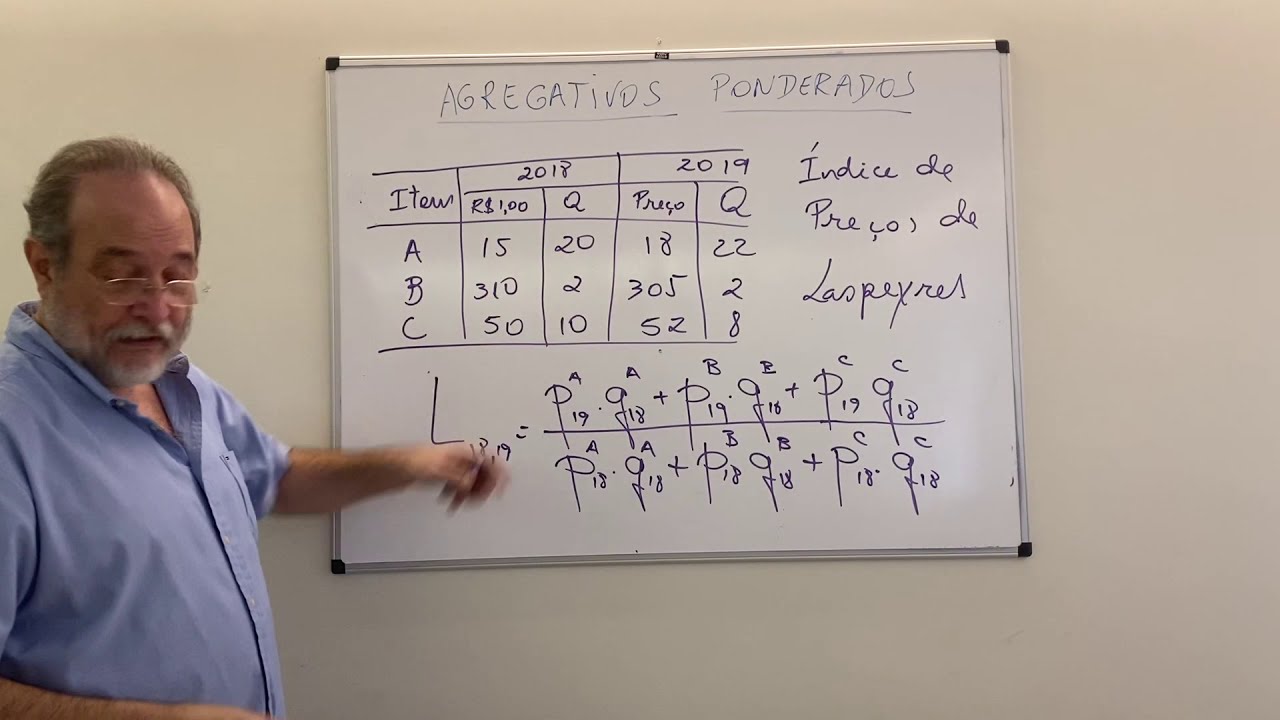 AGREGATIVOS PONDERADOS
2018 2019
Item R$1,00 Q Preço Q
A 15 20 18 22
B 310 2 305 2
C 50 10 52 8
Índice de
Preços de
Laspeyres
L18,19 = p19^A . q18^A + p19^B . q18^B + p19^C q18^C
p18^A . q18^A + p18^B q18^B + p18^C . q18^C